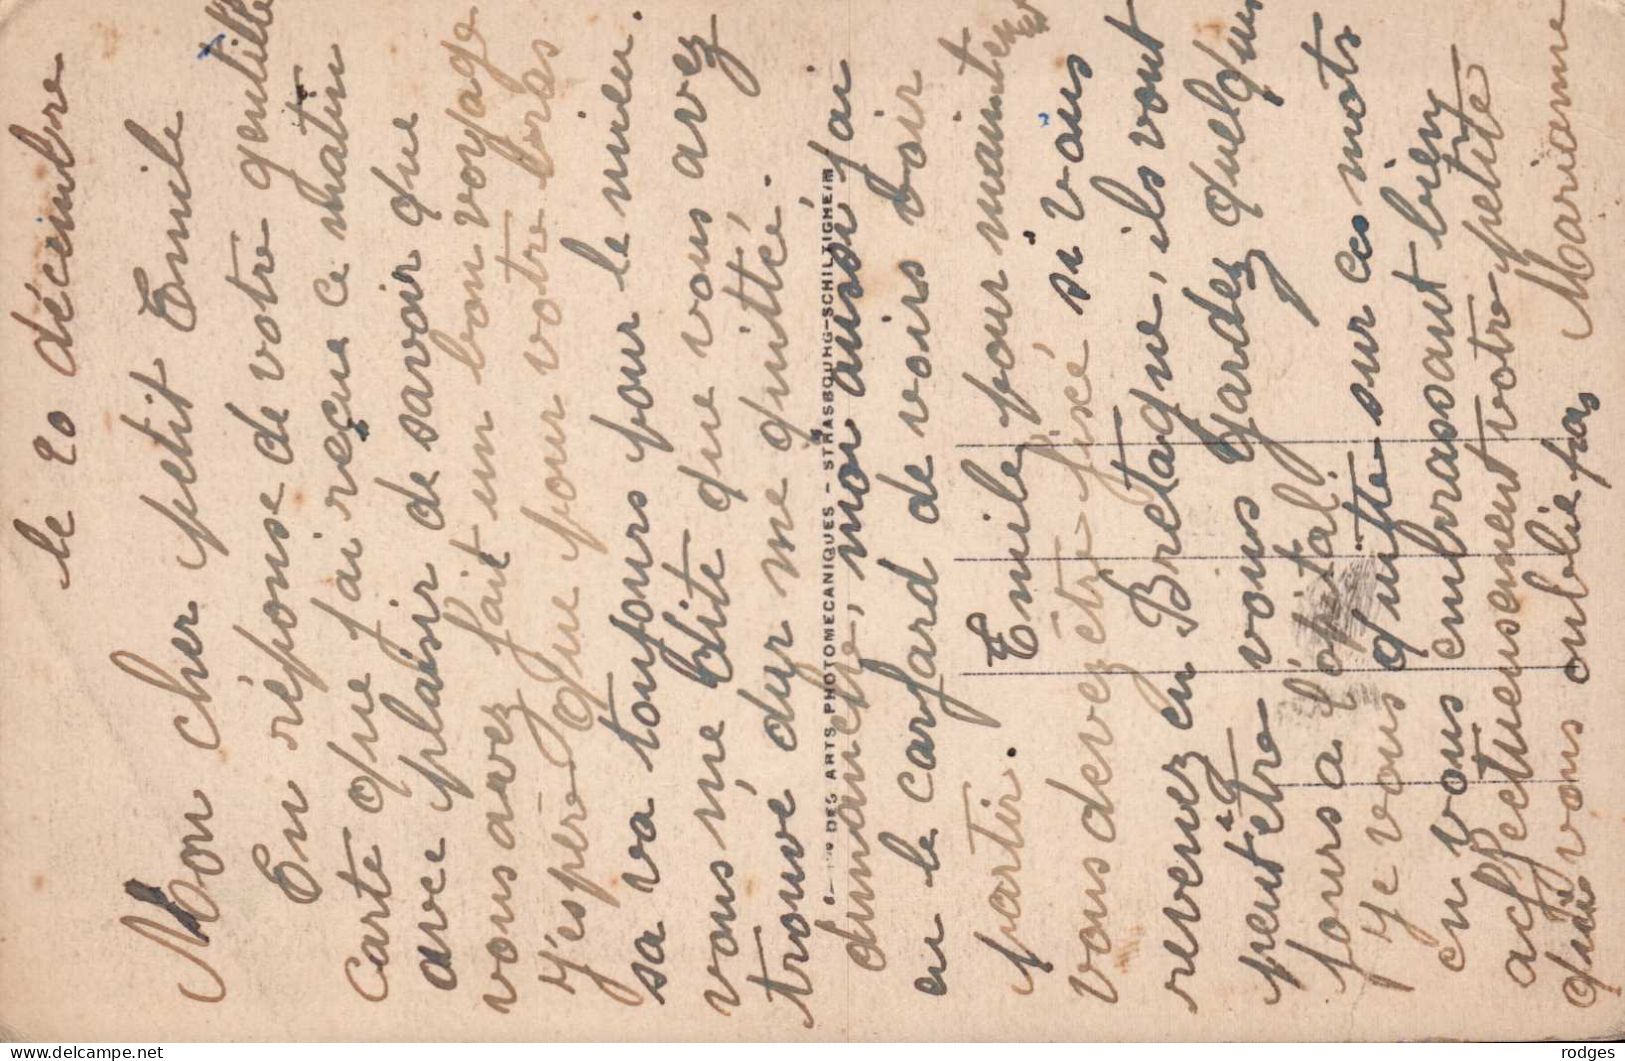 le 20 décembre
Mon cher petit Emile
En réponse de votre gentille
carte que j'ai reçue ce matin
avec plaisir de savoir que
vous avez fait un bon voyage
J'espère que pour votre bras
sa va toujours pour le mieu.
vous me dite que vous avez
trouvé dur me quitté.
dimanche, moi aussi j'ai
eu le carfard de voirs voir
partir. Emile pour maintenent
vous devez être fixé si vous
revenez en Bretagne, ils vont
peut être vous gardez quelque
jours a l'ôpital.
Je vous quitte sur ces mots
en vous embrassant bien
affectueusement votre petite
qui vous oublie pas Marianne
DES ARTS PHOTOMECANIQUES - STRASBOURG-SCHILTIGHEIM
delcampe.net
rodges